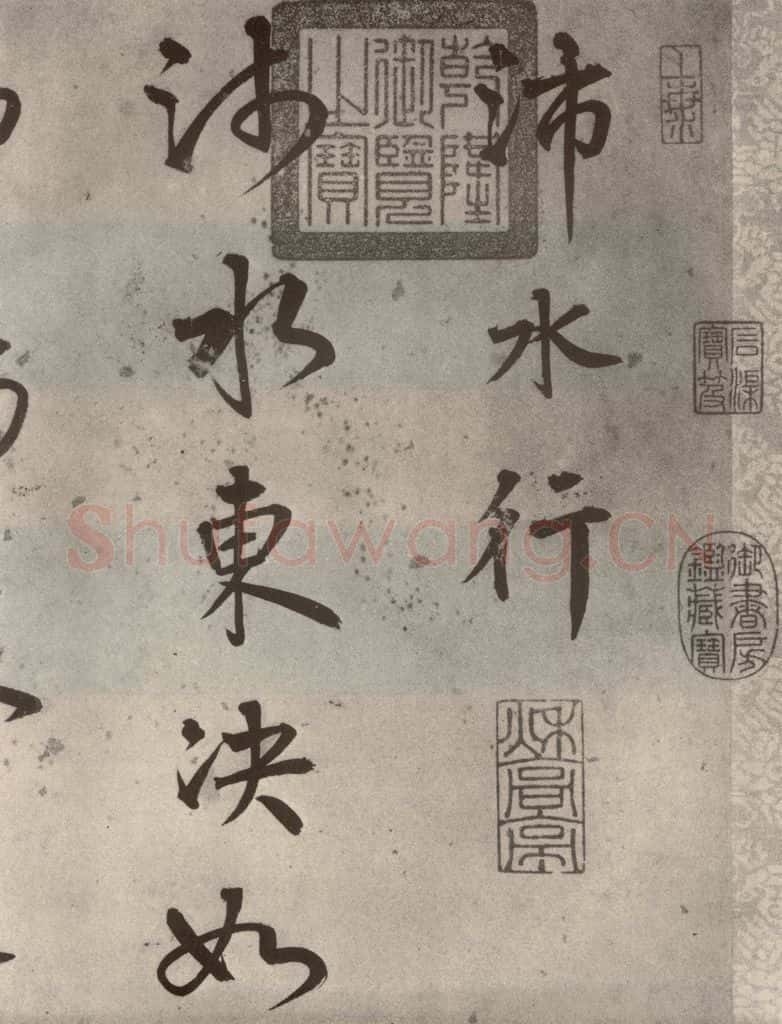 沛水行
沛水東决如
乾隆御覽之寶
石渠寶笈
御書房鑑藏寶
Shufawang.CN